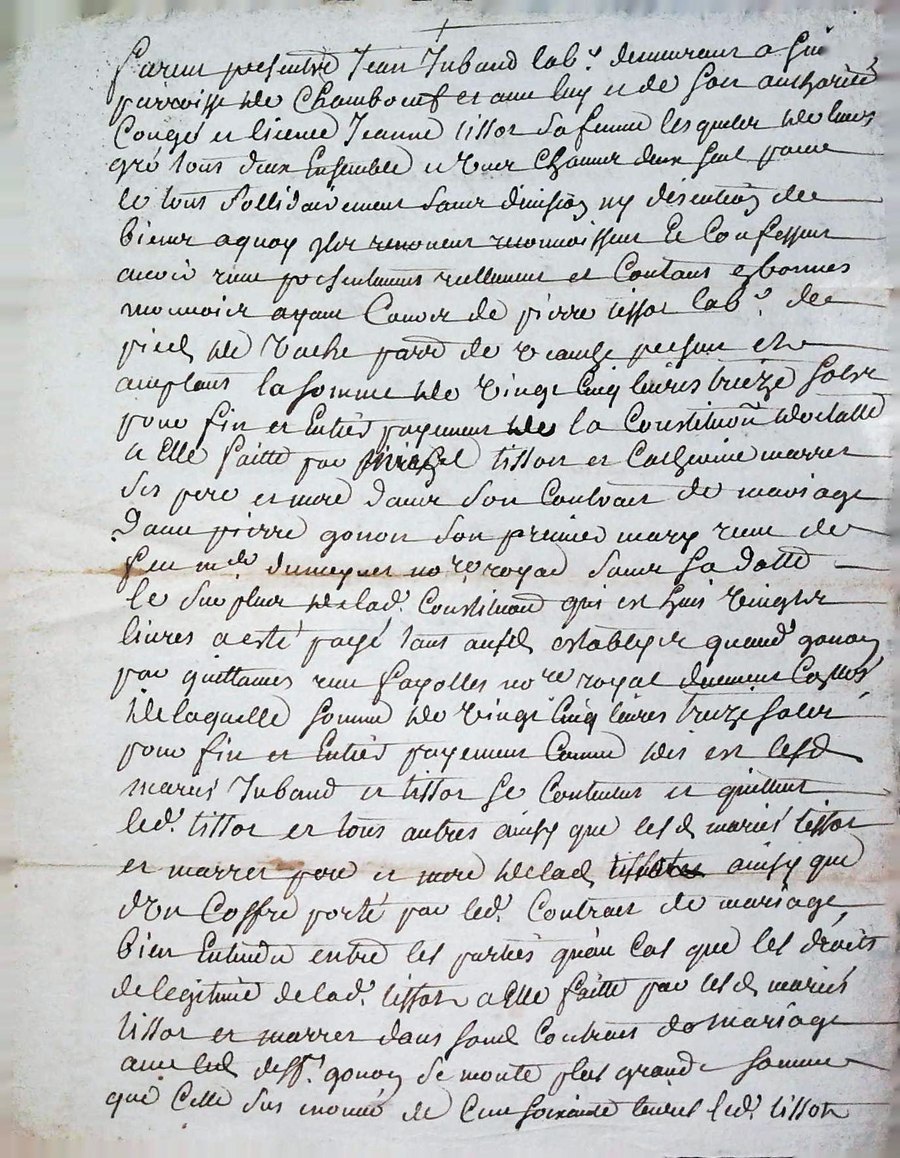 furent presents Jean Jubaud labr. demeurant a
parroisse de Chambœuf et avec luy et de son authorité
Congé et licence Jeanne tissot sa femme lesquels de leurs
gré tous deux Ensemble et Chacun deux seul pour
le tout sollidairement sans division ny discution de
biens a quoy renoncent reconnoissent et Confessent
avoir reçeu presentement reellement et Contant en bonnes
monnoies ayant Cours de pierre tissot labr. de
pied de Vache parr. de present et
acceptant la somme de Vingt Cinq livres treize sols
pour fin et Entier payement de la Constitution dotalle
a Elle faitte par tissot et Catherine marret
ses pere et mere dans son Contrait de mariage
d'avec pierre gonon son premier mary receu de
feu me. no.re royal sans sa dotte
le surplus de lad. Constitution qui est huit Vingts
livres a esté payé tant aud. quand. gonon
par quittances receu fayolles no.re royal duement
de laquelle somme de Vingt Cinq livres treize sols
pour fin et Entier payement Comme dit est lesd.
mariés Jubaud et tissot se Contentent et quittent
led. tissot et tous autres ainsy que lesd. mariés tissot
et marret pere et mere de lad. ainsy que
d'un Coffre porté par led. Contrait de mariage,
bien Entendu entre les partiés qu'au Cas que les droits
de legitime de lad. tissot a Elle faitte par lesd. mariés
tissot et marret dans sond. Contrait de mariage
avec led. deff.t gonon se monte plus grande somme
que Celle sus de Cent soixante livres led. tissot